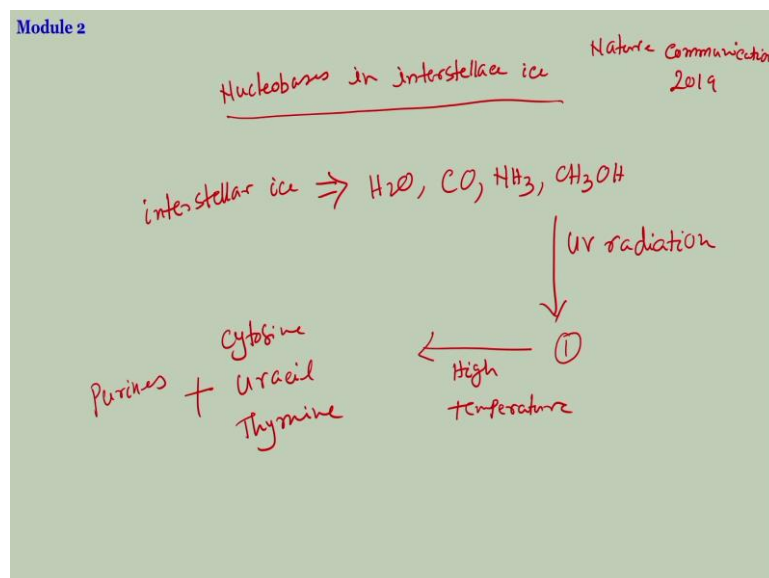 Module 2
Nucleobases in interstellar ice
Nature Communication
2019
interstellar ice ⇒ H2O, CO, NH3, CH3OH
UV radiation
①
High
temperature
Purines +
Cytosine
Uracil
Thymine